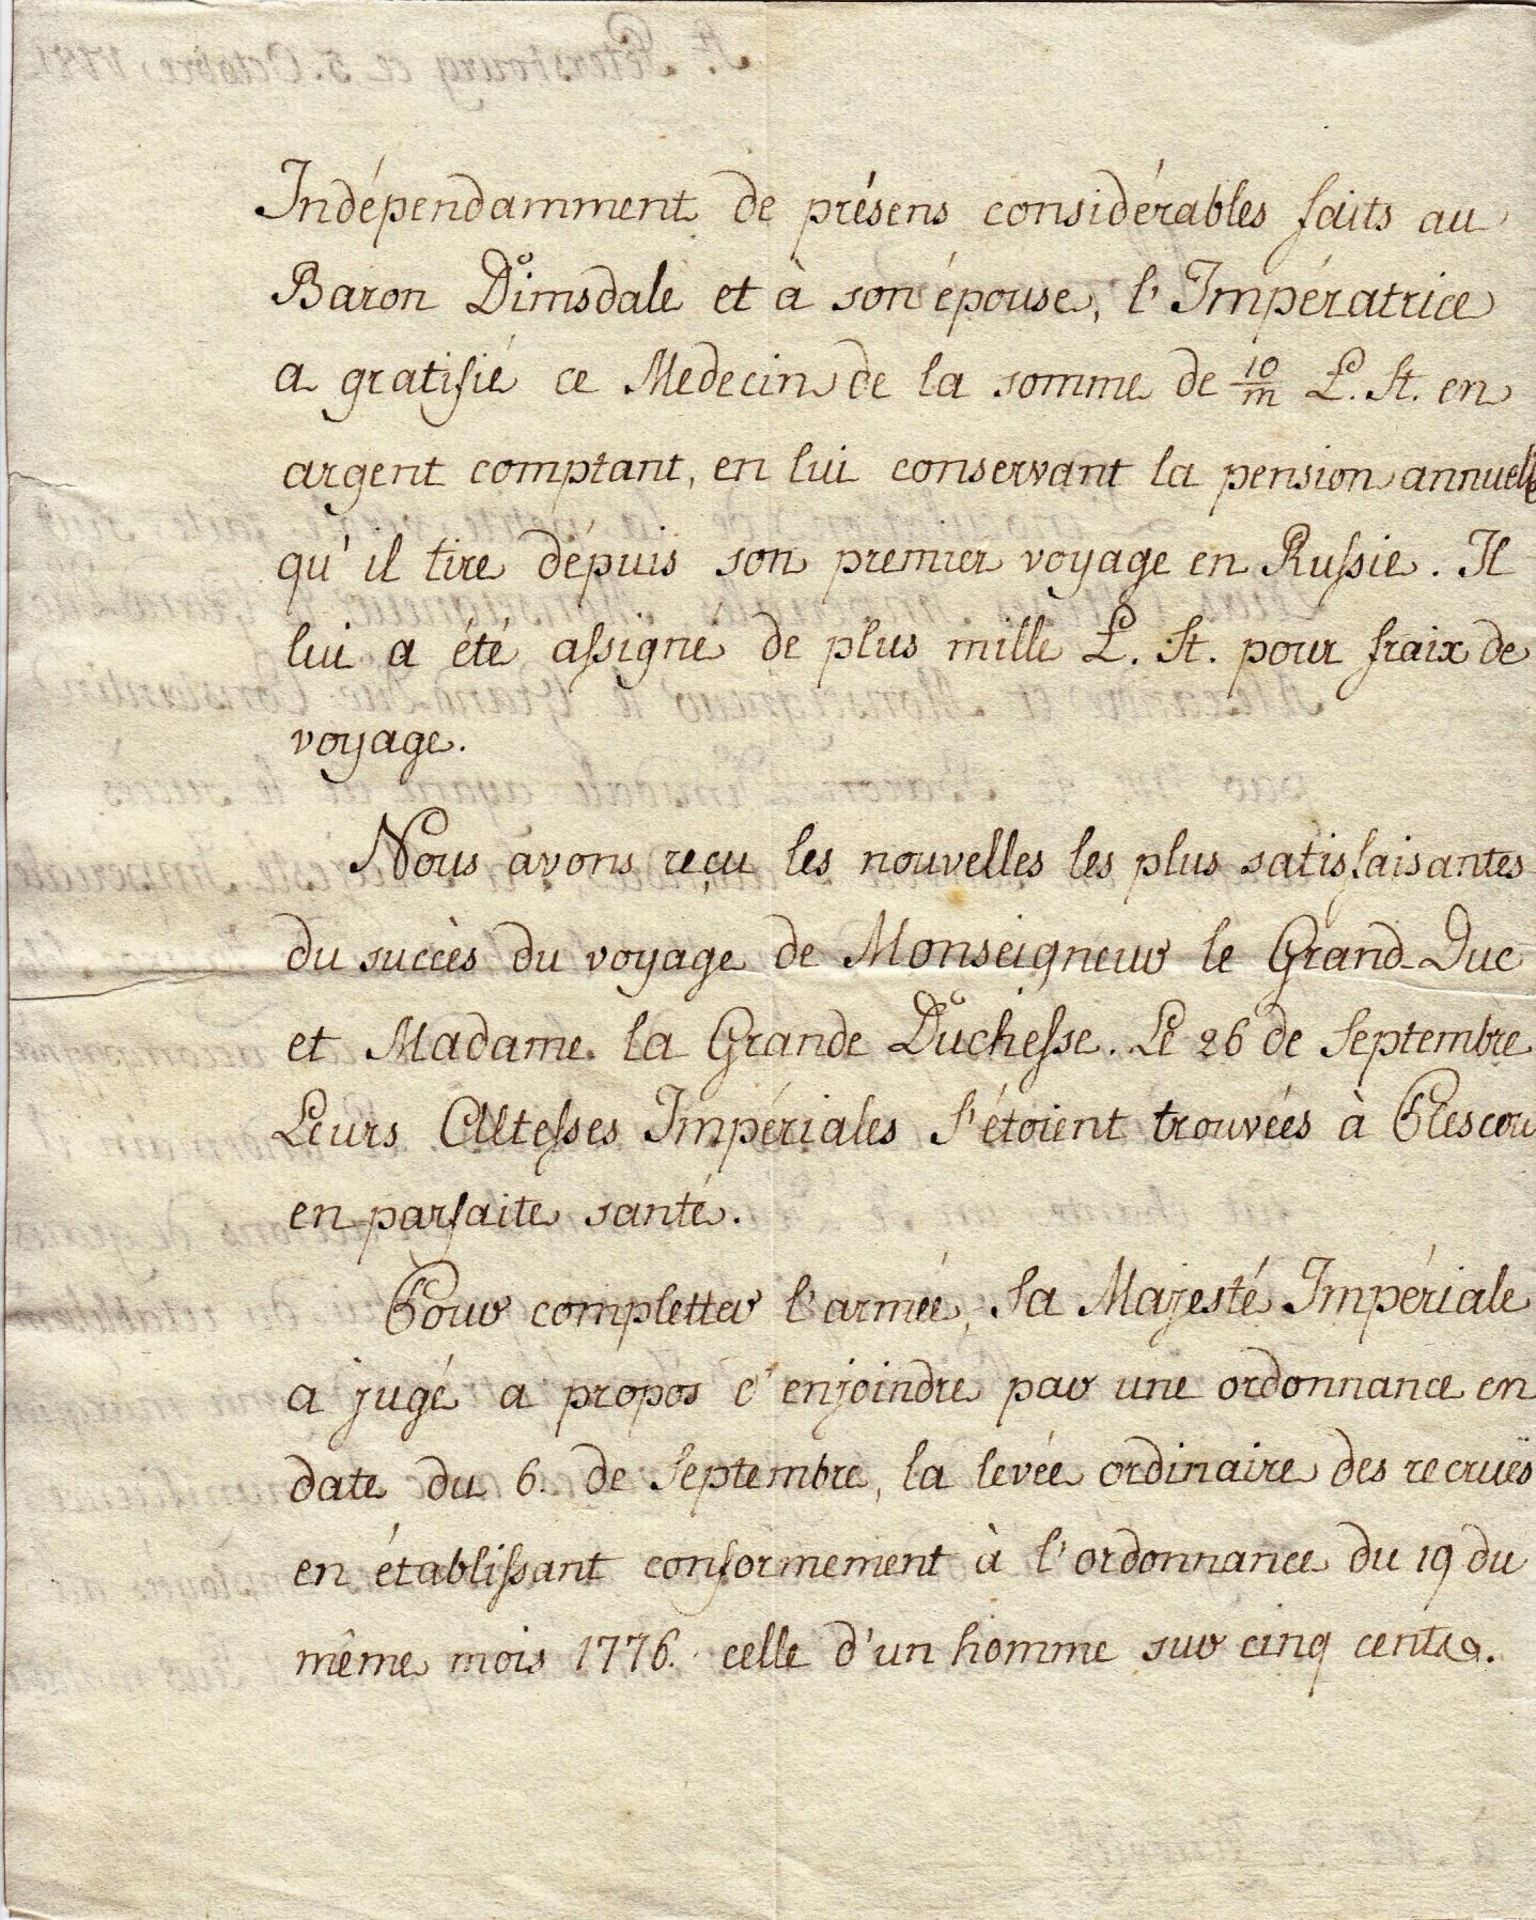 Indépendamment de présens considérables faits au
Baron Dimsdale et à son épouse, l'Impératrice
a gratifié ce Medecin de la somme de 10/m L. St. en
argent comptant, en lui conservant la pension annuelle
qu'il tire dépuis son premier voyage en Russie. Il
lui a été assigné de plus mille L. St. pour fraix de
voyage.
Nous avons reçu les nouvelles les plus satisfaisantes
du succès du voyage de Monseigneur le Grand-Duc
et Madame la Grande Duchesse. Le 26 de Septembre
Leurs Altesses Impériales s'étoient trouvées à Plescou
en parfaite santé.
Pour completter l'armée, Sa Majesté Impériale
a jugé a propos d'enjoindre par une ordonnance en
date du 6. de Septembre, la levée ordinaire des recruës
en établissant conformement à l'ordonnance du 19 du
même mois 1776. celle d'un homme sur cinq cents.